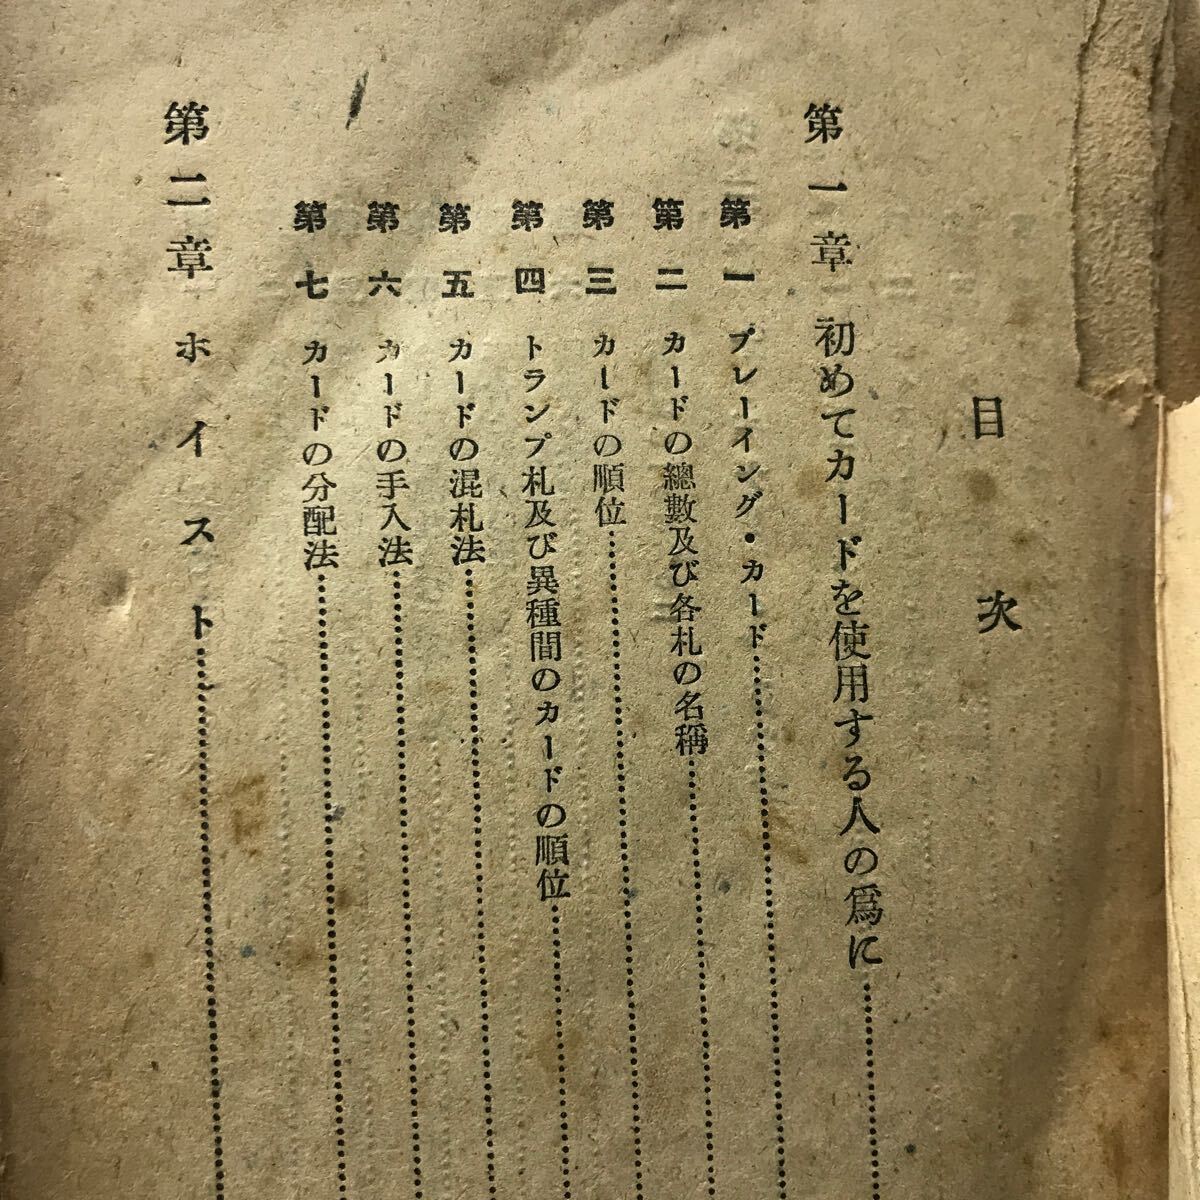 目次
第一章 初めてカードを使用する人の爲に
第一 プレーイング・カード
第二 カードの總數及び各札の名稱
第三 カードの順位
第四 トランプ札及び異種間のカードの順位
第五 カードの混札法
第六 カードの手入法
第七 カードの分配法
第二章 ホイスト